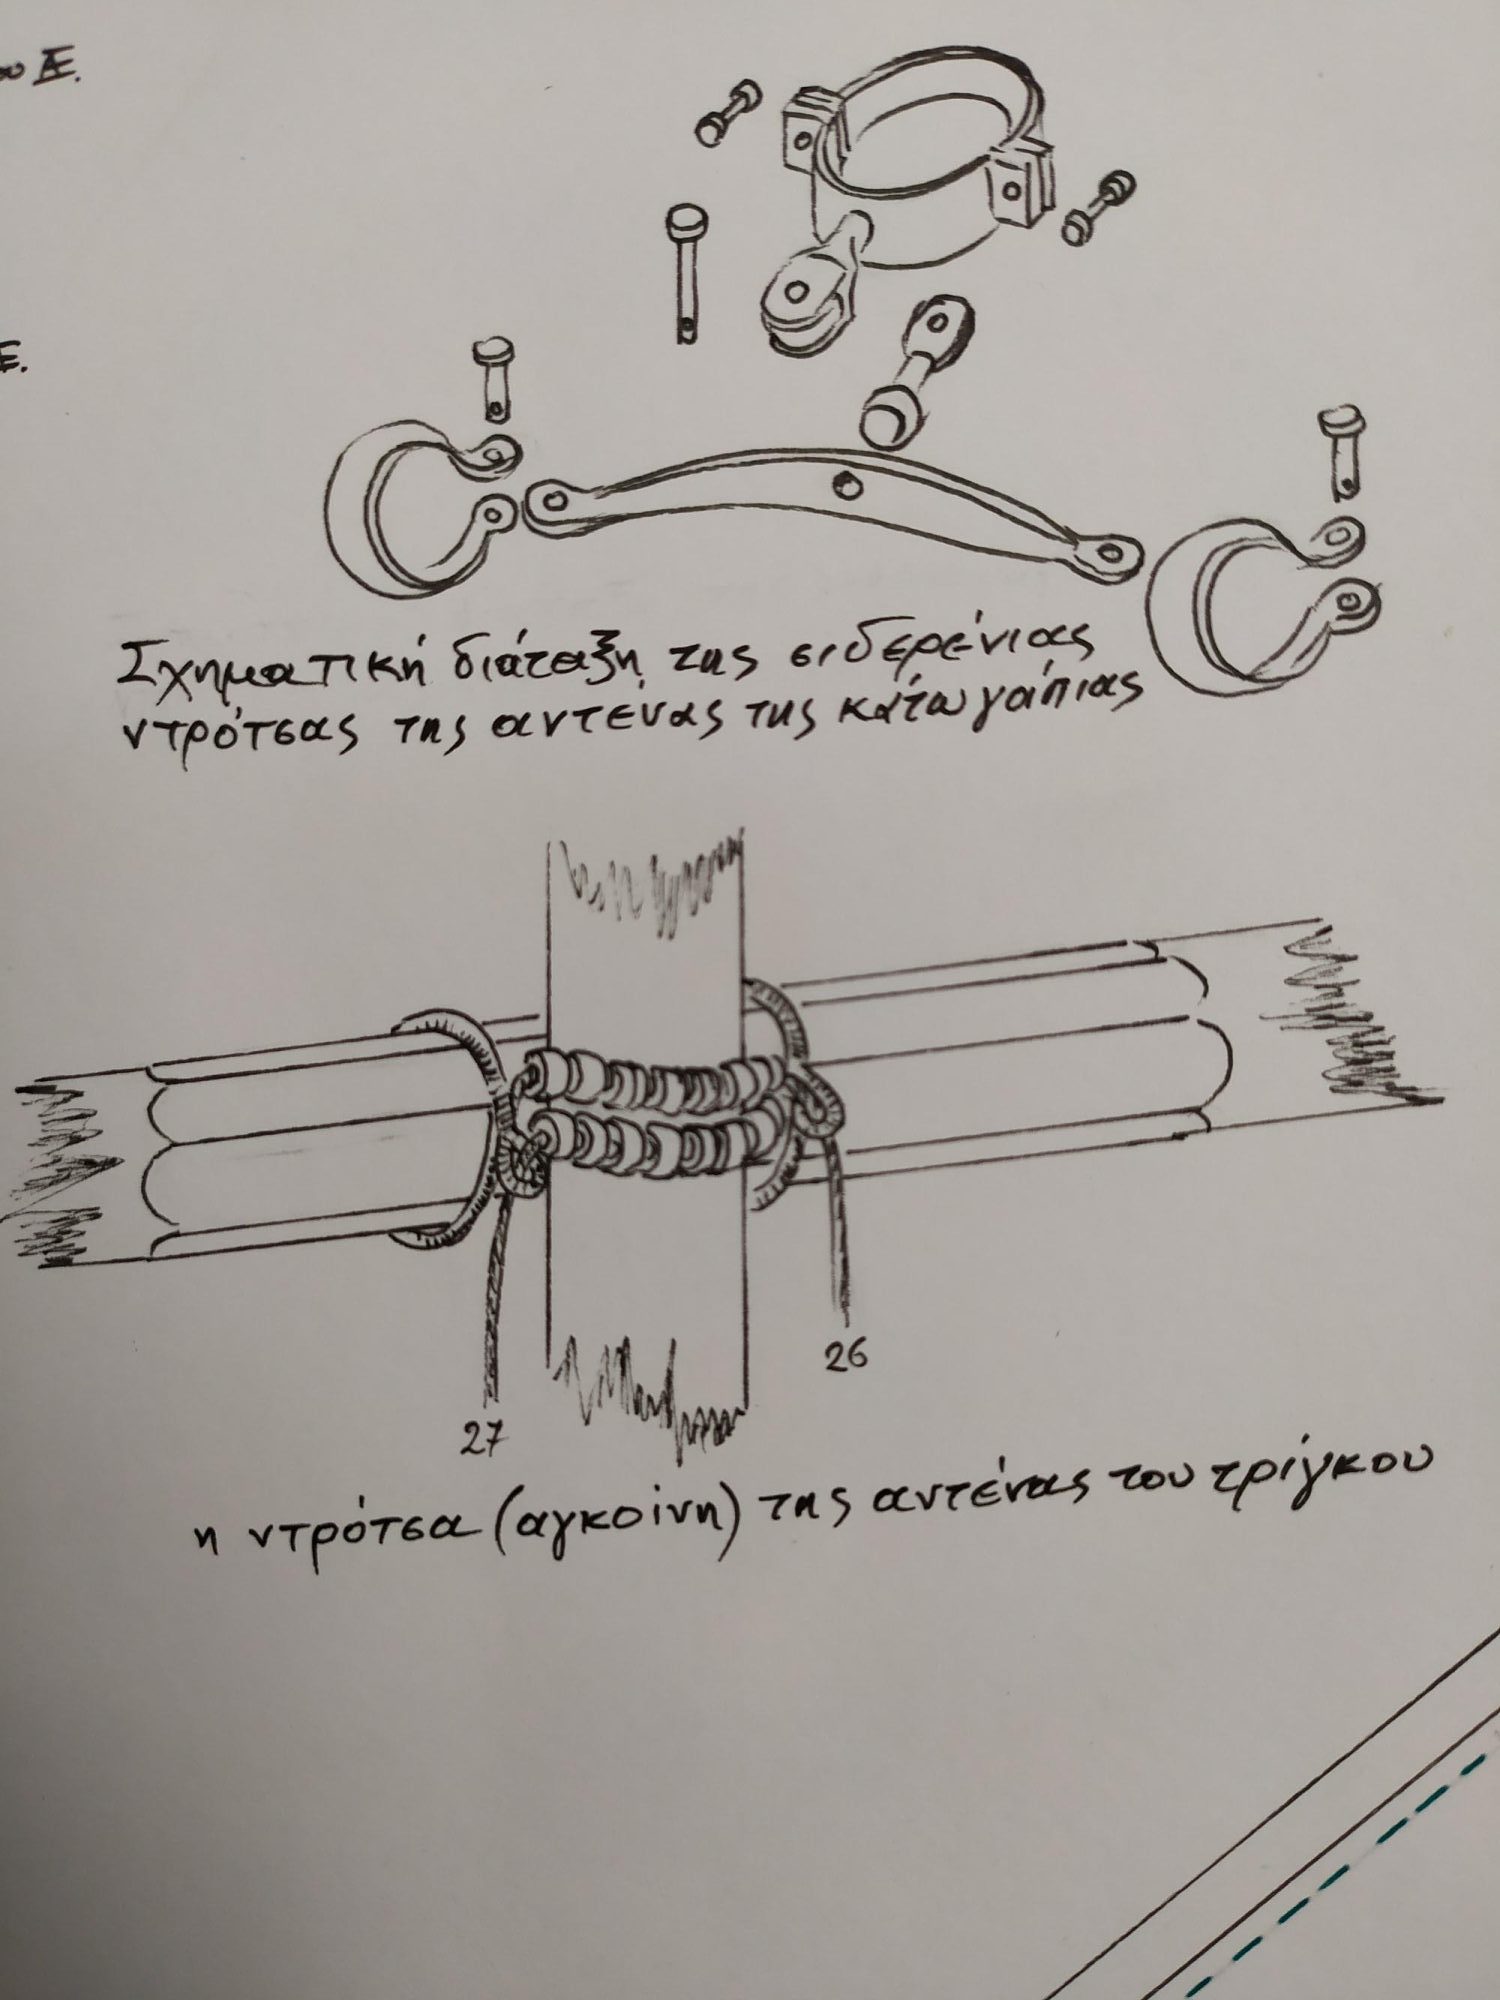 Ε.
Σχηματική διάταξη της σιδερένιας
ντρότσας της αντένας της κάτω γάπιας
26
27
η ντρότσα (αγκοίνη) της αντένας του τρίγκου